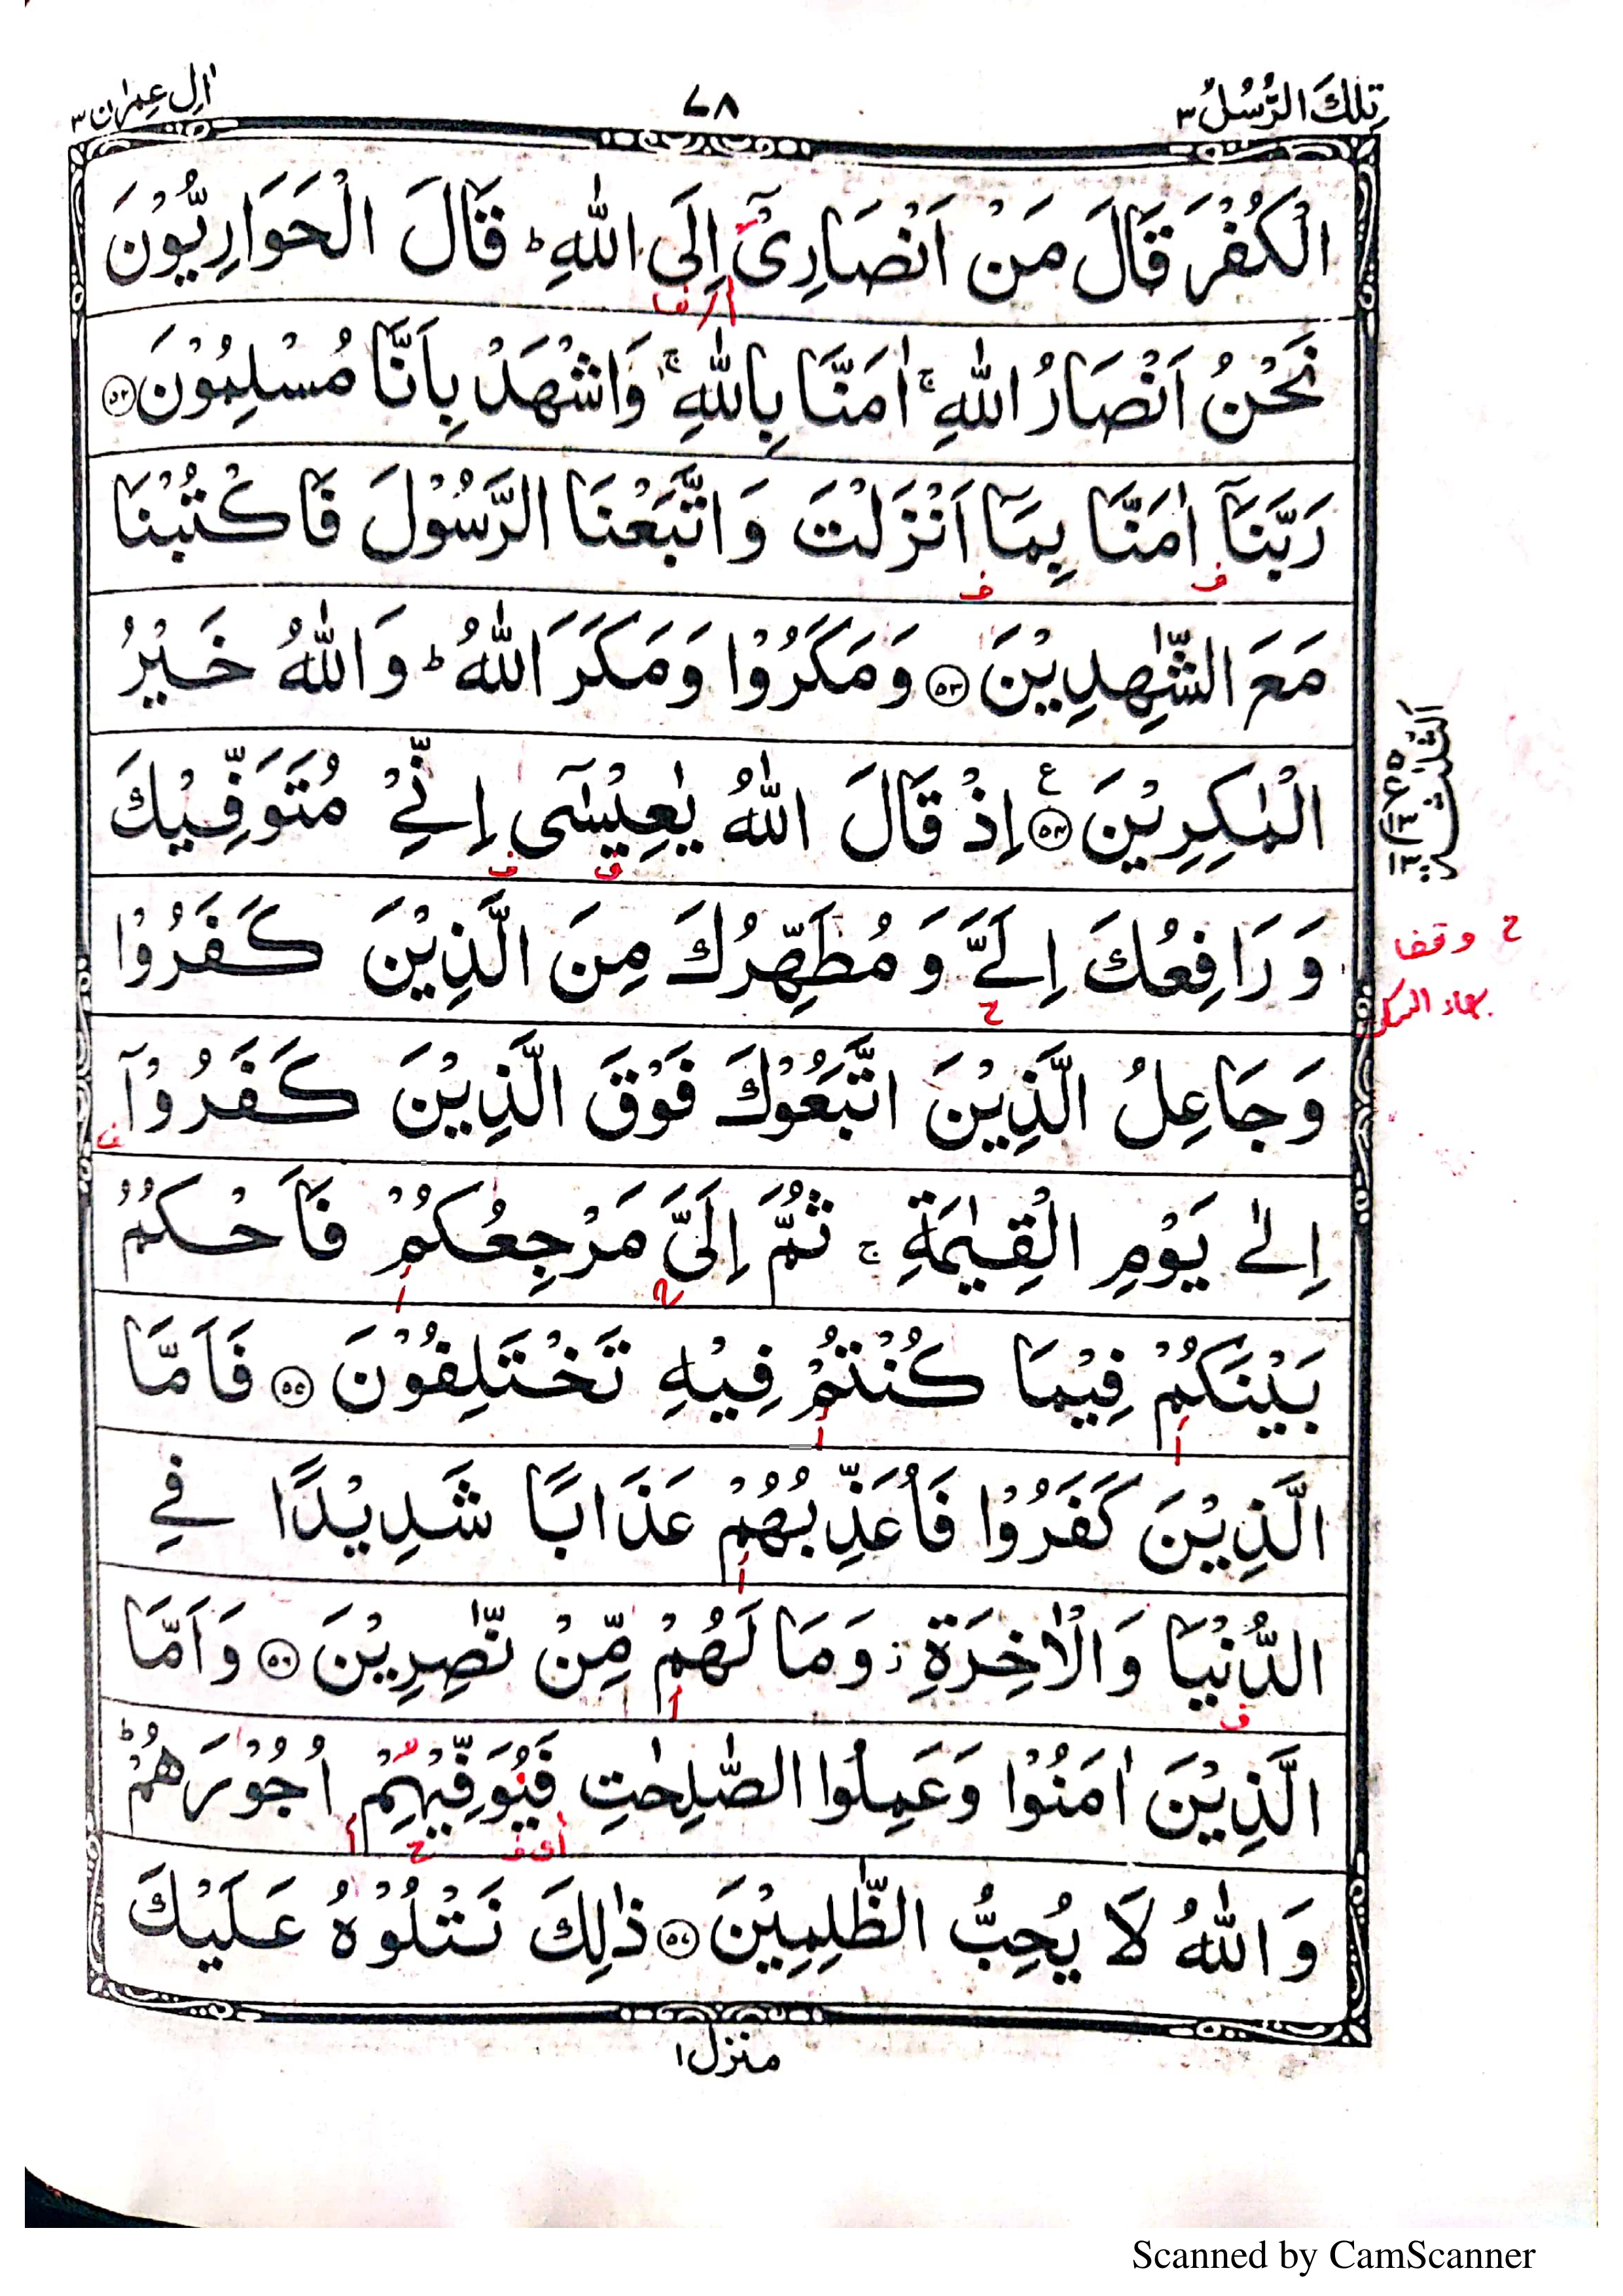 تِلْكَ الرُّسُلُ ٣
٧٨
اٰلِ عِمْرٰن ٣
الْكُفْرَ قَالَ مَنْ اَنْصَارِیْۤ اِلَی اللّٰهِ ؕ قَالَ الْحَوَارِیُّوْنَ
نَحْنُ اَنْصَارُ اللّٰهِ ۚ اٰمَنَّا بِاللّٰهِ ۚ وَاشْهَدْ بِاَنَّا مُسْلِمُوْنَ ﴿۵۲﴾
رَبَّنَاۤ اٰمَنَّا بِمَاۤ اَنْزَلْتَ وَاتَّبَعْنَا الرَّسُوْلَ فَاكْتُبْنَا
مَعَ الشّٰهِدِیْنَ ﴿۵۳﴾ وَمَكَرُوْا وَمَكَرَ اللّٰهُ ؕ وَاللّٰهُ خَیْرُ
الْمٰكِرِیْنَ ﴿۵۴﴾ ع اِذْ قَالَ اللّٰهُ یٰعِیْسٰۤی اِنِّیْ مُتَوَفِّیْكَ
وَرَافِعُكَ اِلَیَّ وَمُطَهِّرُكَ مِنَ الَّذِیْنَ كَفَرُوْا
وَجَاعِلُ الَّذِیْنَ اتَّبَعُوْكَ فَوْقَ الَّذِیْنَ كَفَرُوْۤا
اِلٰی یَوْمِ الْقِیٰمَةِ ۚ ثُمَّ اِلَیَّ مَرْجِعُكُمْ فَاَحْكُمُ
بَیْنَكُمْ فِیْمَا كُنْتُمْ فِیْهِ تَخْتَلِفُوْنَ ﴿۵۵﴾ فَاَمَّا
الَّذِیْنَ كَفَرُوْا فَاُعَذِّبُهُمْ عَذَابًا شَدِیْدًا فِی
الدُّنْیَا وَالْاٰخِرَةِ ؗ وَمَا لَهُمْ مِّنْ نّٰصِرِیْنَ ﴿۵۶﴾ وَاَمَّا
الَّذِیْنَ اٰمَنُوْا وَعَمِلُوا الصّٰلِحٰتِ فَیُوَفِّیْهِمْ اُجُوْرَهُمْ ؕ
وَاللّٰهُ لَا یُحِبُّ الظّٰلِمِیْنَ ﴿۵۷﴾ ذٰلِكَ نَتْلُوْهُ عَلَیْكَ
الثلٰثة
ح وقفا
منزل ۱
Scanned by CamScanner